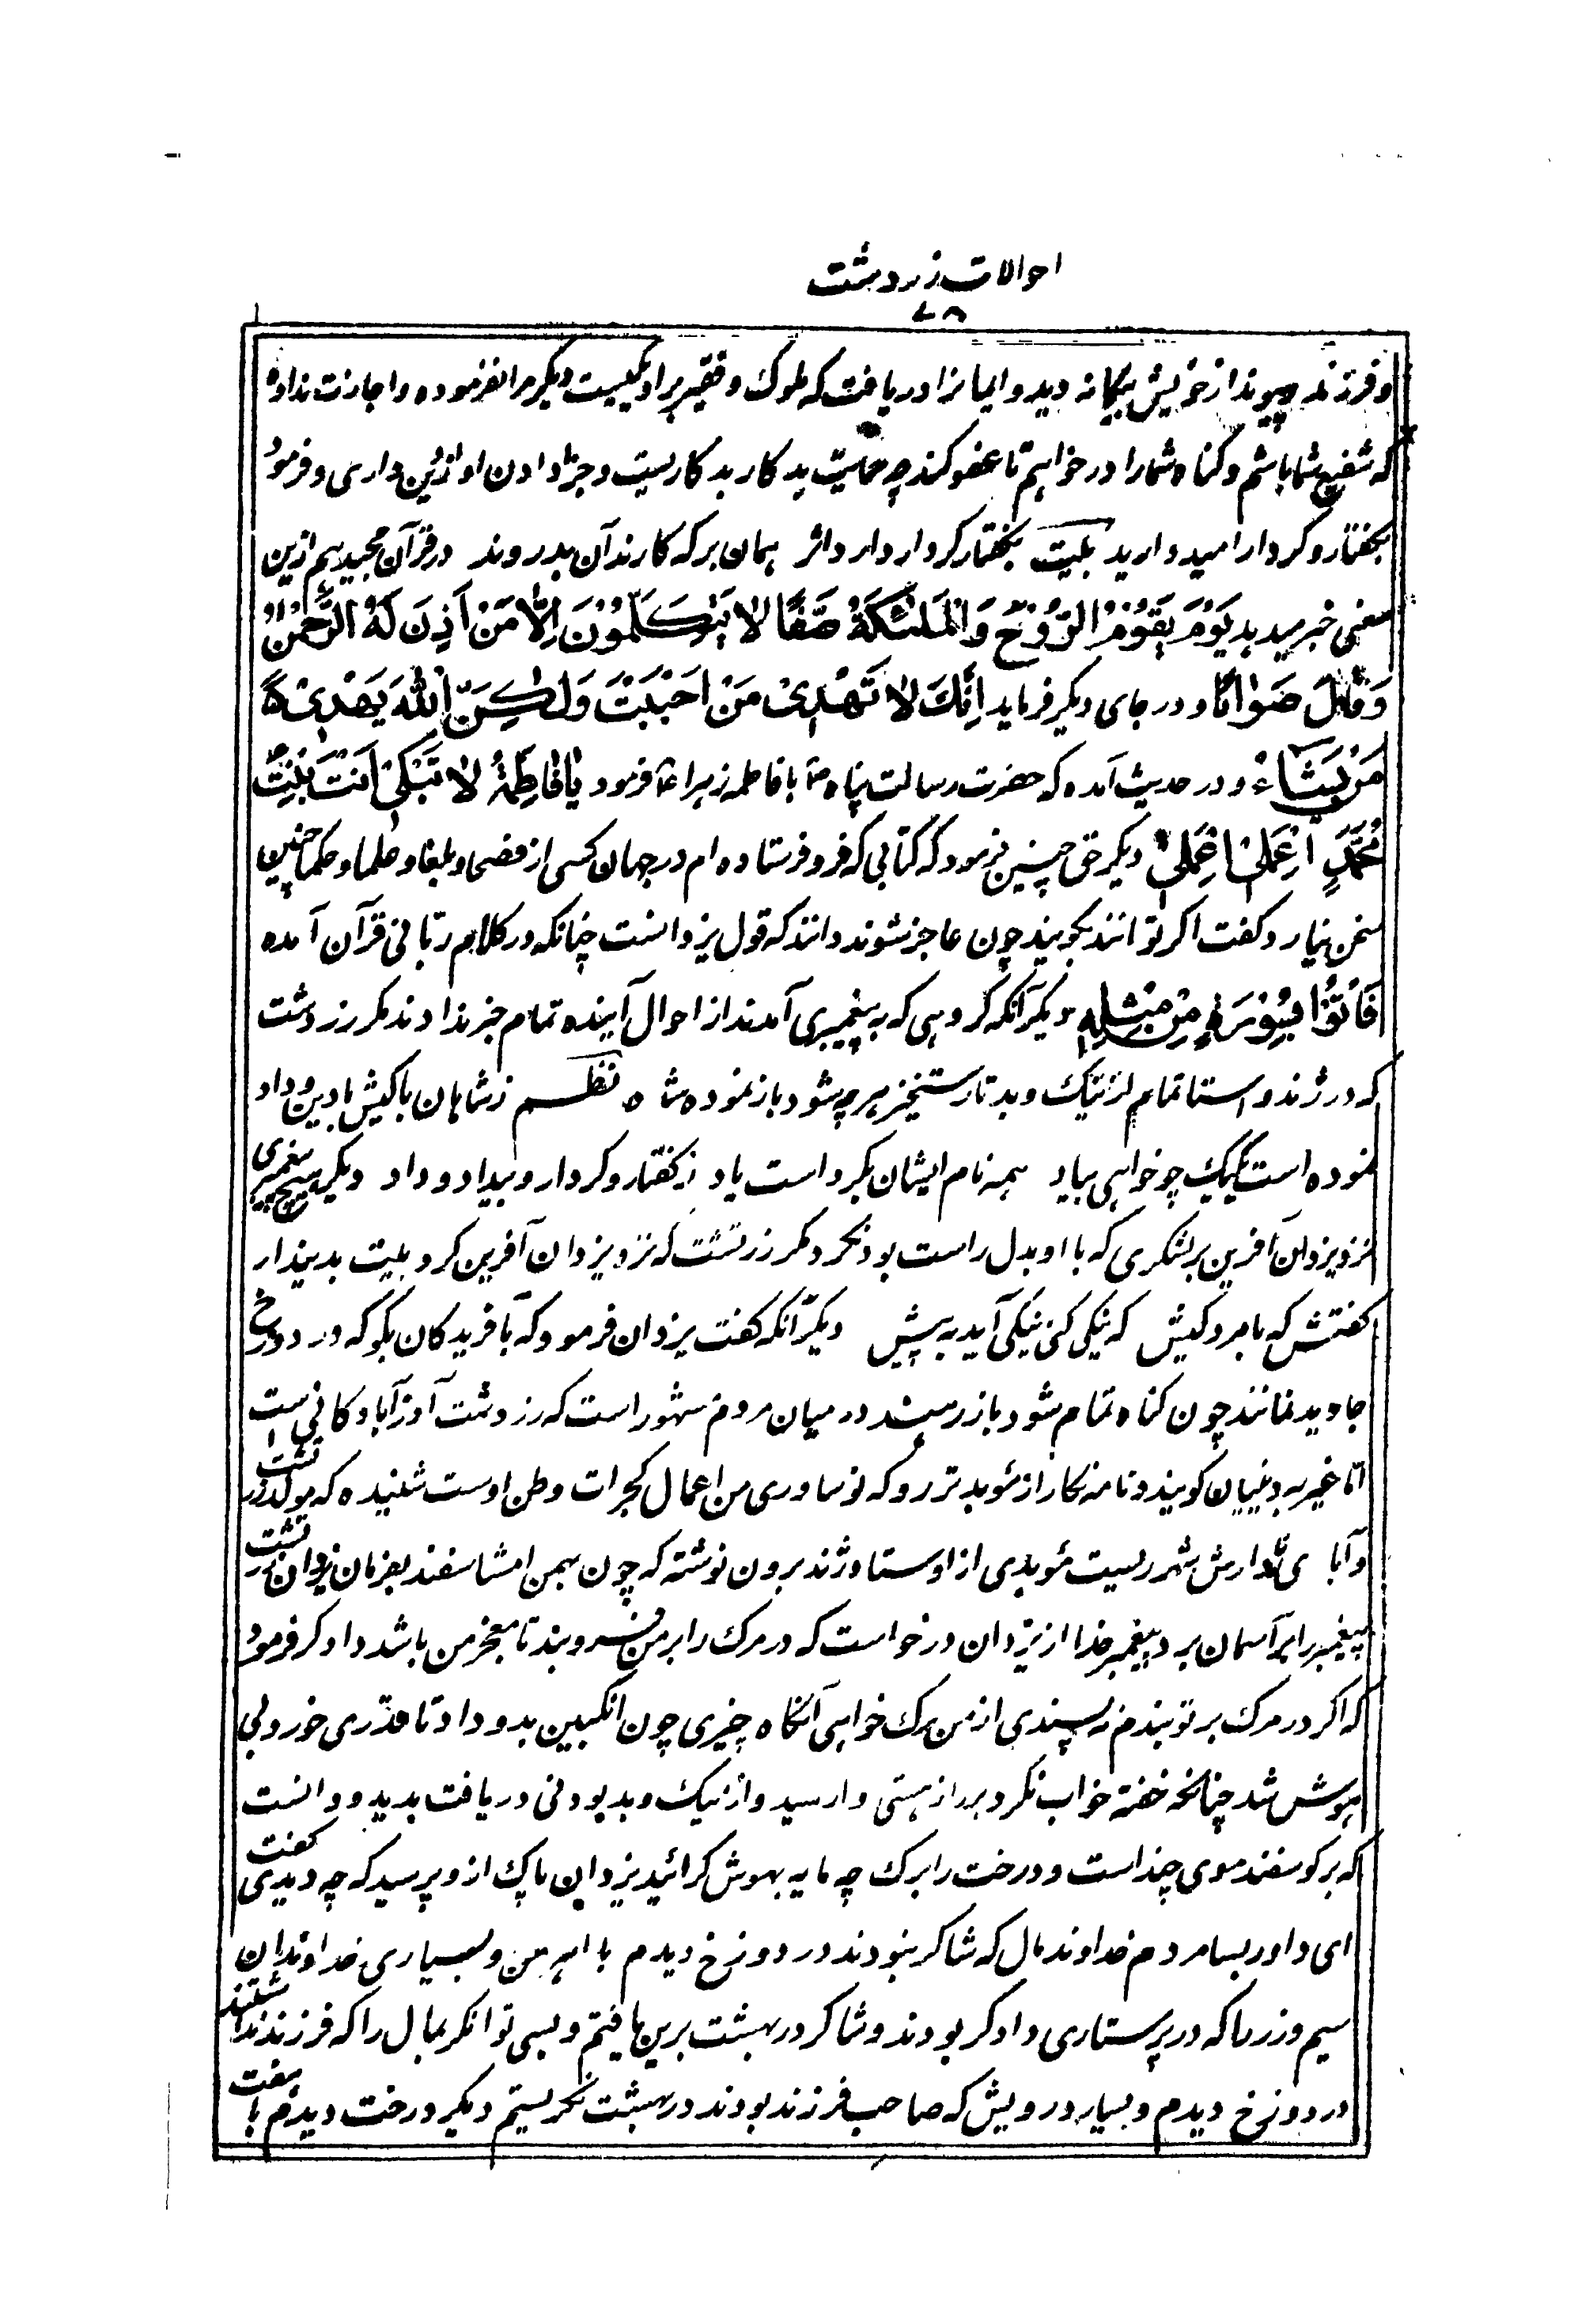 احوالات زردشت
۷۸
و فرزند و پیوند از خویش بیگانه دید و ایمانرا دریافت که ملوک و فقیر برِ او یکیست دیگر مرا نفرموده و اجازت نداده
که شفیع شما باشم و گناه شما را درخواهم تا عفو کند چه حمایت بدکار بدکاریست و جزا دادن او از دین داری و فرمود
بگفتار و کردار امید دارید بیت بگفتار کردار دار داثر همان بر که کارند آن بدروند در قرآن مجید هم ازین
معنی خبر میدهد یَوْمَ یَقُوْمُ الرُّوْحُ وَالْمَلٰئِکَةُ صَفًّا لَا یَتَکَلَّمُوْنَ اِلَّا مَنْ اَذِنَ لَهُ الرَّحْمٰنُ
وَقَالَ صَوَابًا و در جای دیگر فرماید اِنَّكَ لَا تَهْدِیْ مَنْ اَحْبَبْتَ وَلٰکِنَّ اللّٰهَ یَهْدِیْ
مَنْ یَشَاءُ و در حدیث آمده که حضرت رسالت پناه ص با فاطمه زهرا ع فرمود یَا فَاطِمَةُ لَا تَبْکِیْ اَنْتَ بِنْتِ
مُحَمَّدٍ اِعْمَلِیْ اِعْمَلِیْ دیگر حق چنین فرمود که کتابی که فرو فرستاده ام در جهان کسی از فصحا و بلغا و علما و حکما چنین
سخن نیارد گفت اگر توانند بگویند چون عاجز شوند دانند که قول یزدانست چنانکه در کلام ربانی قرآن آمده
فَاْتُوْا بِسُوْرَةٍ مِنْ مِثْلِهِ دیگر آنکه گروهی که به پیغمبری آمدند از احوال آینده تمام خبر ندادند مگر زردشت
که در ژند و استا تمام از نیک و بد تا رستخیز هر چه شود باز نموده شاه نظم ز شاهان با کیش با دین و داد
نموده است یکیک چو خواهی بیاد همه نام ایشان بکرد است یاد ز گفتار و کردار و بیداد و داد دیگر هیچ پیغمبری
نزد یزدان آفرین بر لشکری که با او بدل راست بود نکرد مگر زرتشت که نزد یزدان آفرین کرد بیت بدیندار
گفتش که با مرد کیش که نیکی کنی نیکی آید به پیش دیگر آنکه گفت یزدان فرمود که بآفریدگان بگو که در دوزخ
جاوید نمانند چون گناه تمام شود باز رهند در میان مردم مشهور است که زردشت آذرآبادگانی است
اما غیر به دینیان گویند و نامه نگار از موبد ترو که نوساوری من اعمال گجرات وطن اوست شنیده که مولد زرتشت
و آبای نامدارش شهر ریست موبدی از اوستا و ژند برون نوشته که چون بهمن امشاسفند بفرمان یزدان زرتشت
پیغمبر را بر آسمان برد پیغمبر خدا از یزدان درخواست که در مرگ را بر من فرو بند تا معجز من باشد دادگر فرمود
که اگر در مرگ بر تو بندم نه پسندی از من مرگ خواهی آنگاه چیزی چون انگبین بدو داد تا قدری خورد بی
هوش شد چنانکه خفته خواب نگرد بر راز هستی وارسید و از نیک و بد بودنی دریافت بدید و دانست
که بر گوسفند موی چند است و درخت را برگ چه مایه بهوش گرائید یزدان پاک ازو پرسید که چه دیدی گفت
ای داور بسا مردم خداوند مال که شاکر نبودند در دوزخ دیدم با اهرمن و بسیاری خداوندان
سیم و زر را که در پرستاری دادگر بودند و شاکر در بهشت برین یافتم و بسی توانگر بمال را که فرزند نداشتند
در دوزخ دیدم و بسیار درویش که صاحب فرزند بودند در بهشت نگریستم دیگر درخت دیدم با هفت